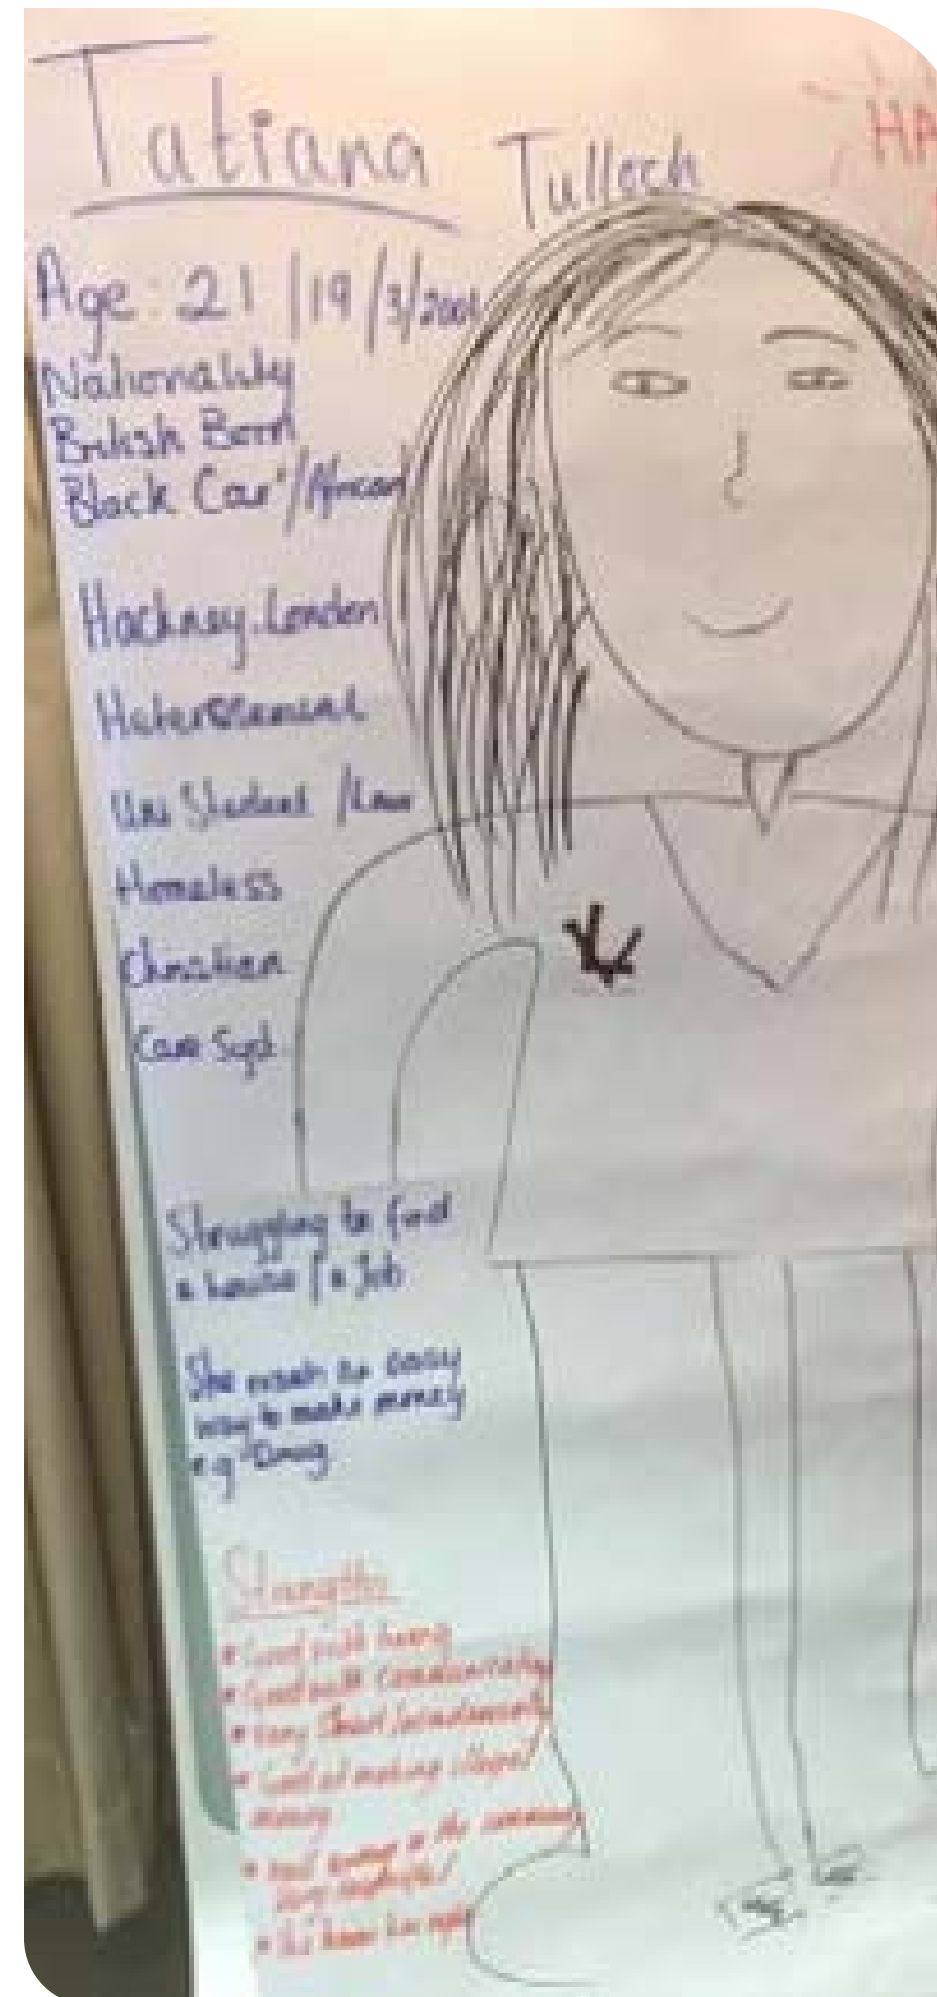 Tatiana Tulloch
HA
Age: 21 / 19/3/2001
Nationality
British Born
Black Car'/African
Hackney. London
Heterosexual
Uni Student / Law
Homeless
Christian
Care Syst.
Struggling to find
a house / a Job
She easy
way to make money
e.g Drug
Strengths
• Good with
• Good with
• Very Smart
• Good at making illegal
money
• in the
very
• She knows her